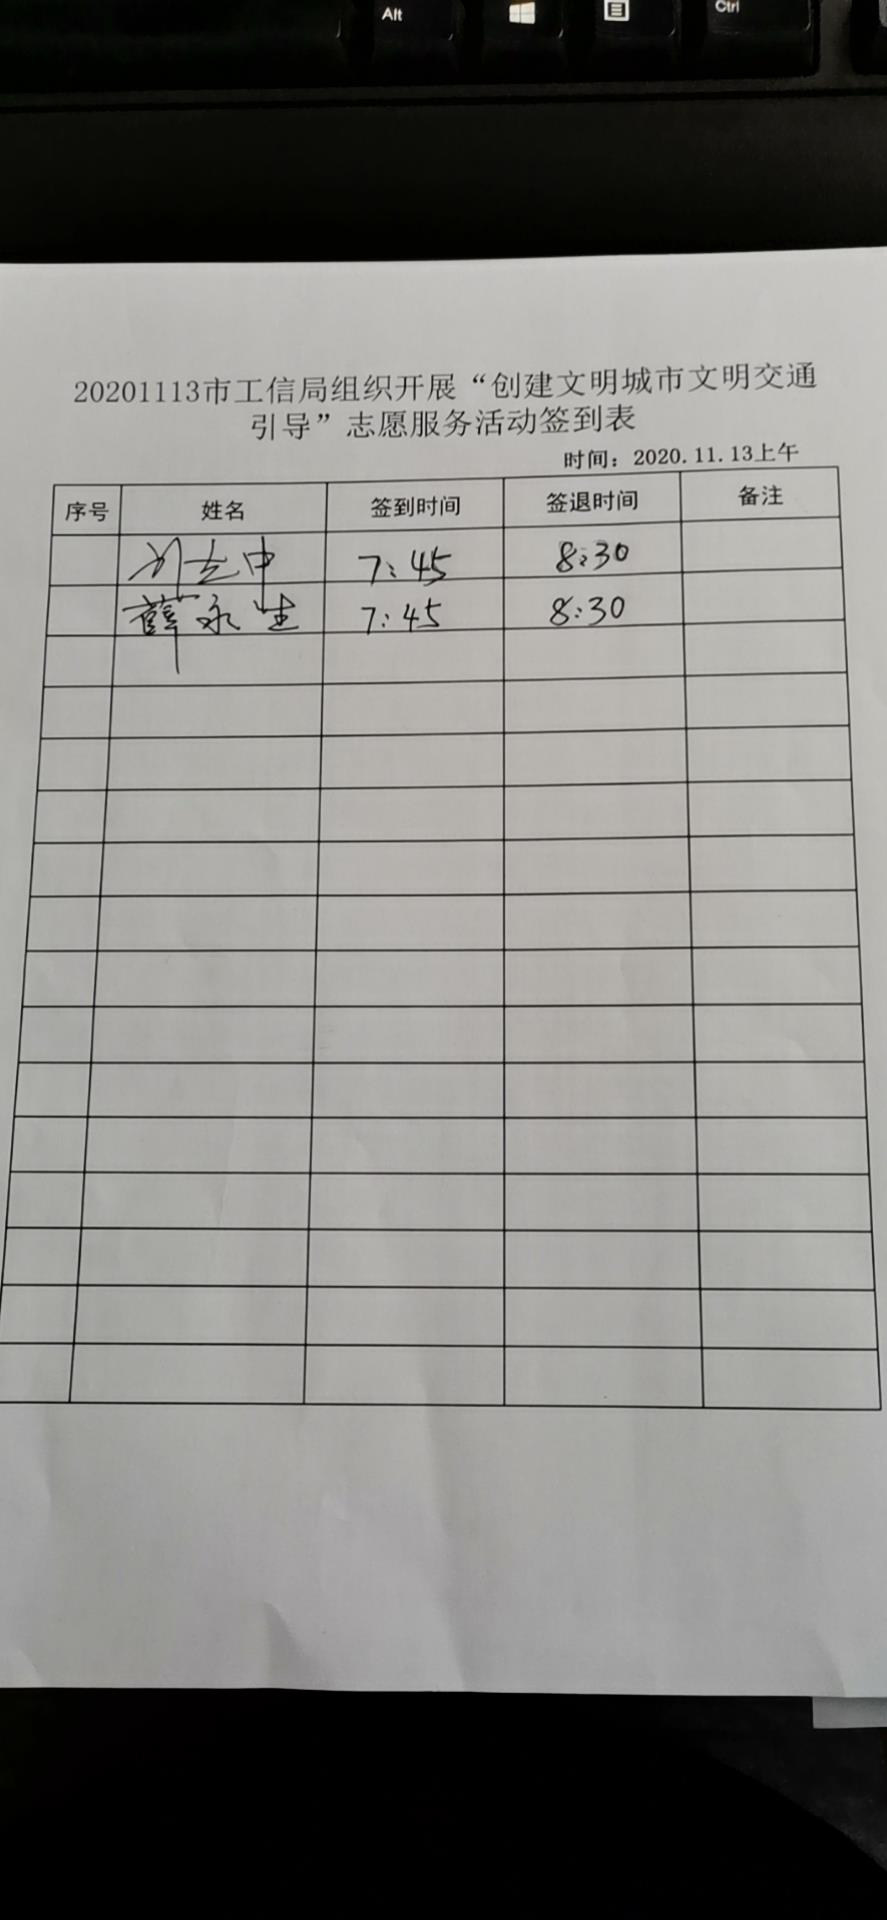 Alt
Ctrl
20201113市工信局组织开展“创建文明城市文明交通
引导”志愿服务活动签到表
时间：2020.11.13上午
序号 姓名 签到时间 签退时间 备注
刘志中 7:45 8:30
薛永生 7:45 8:30